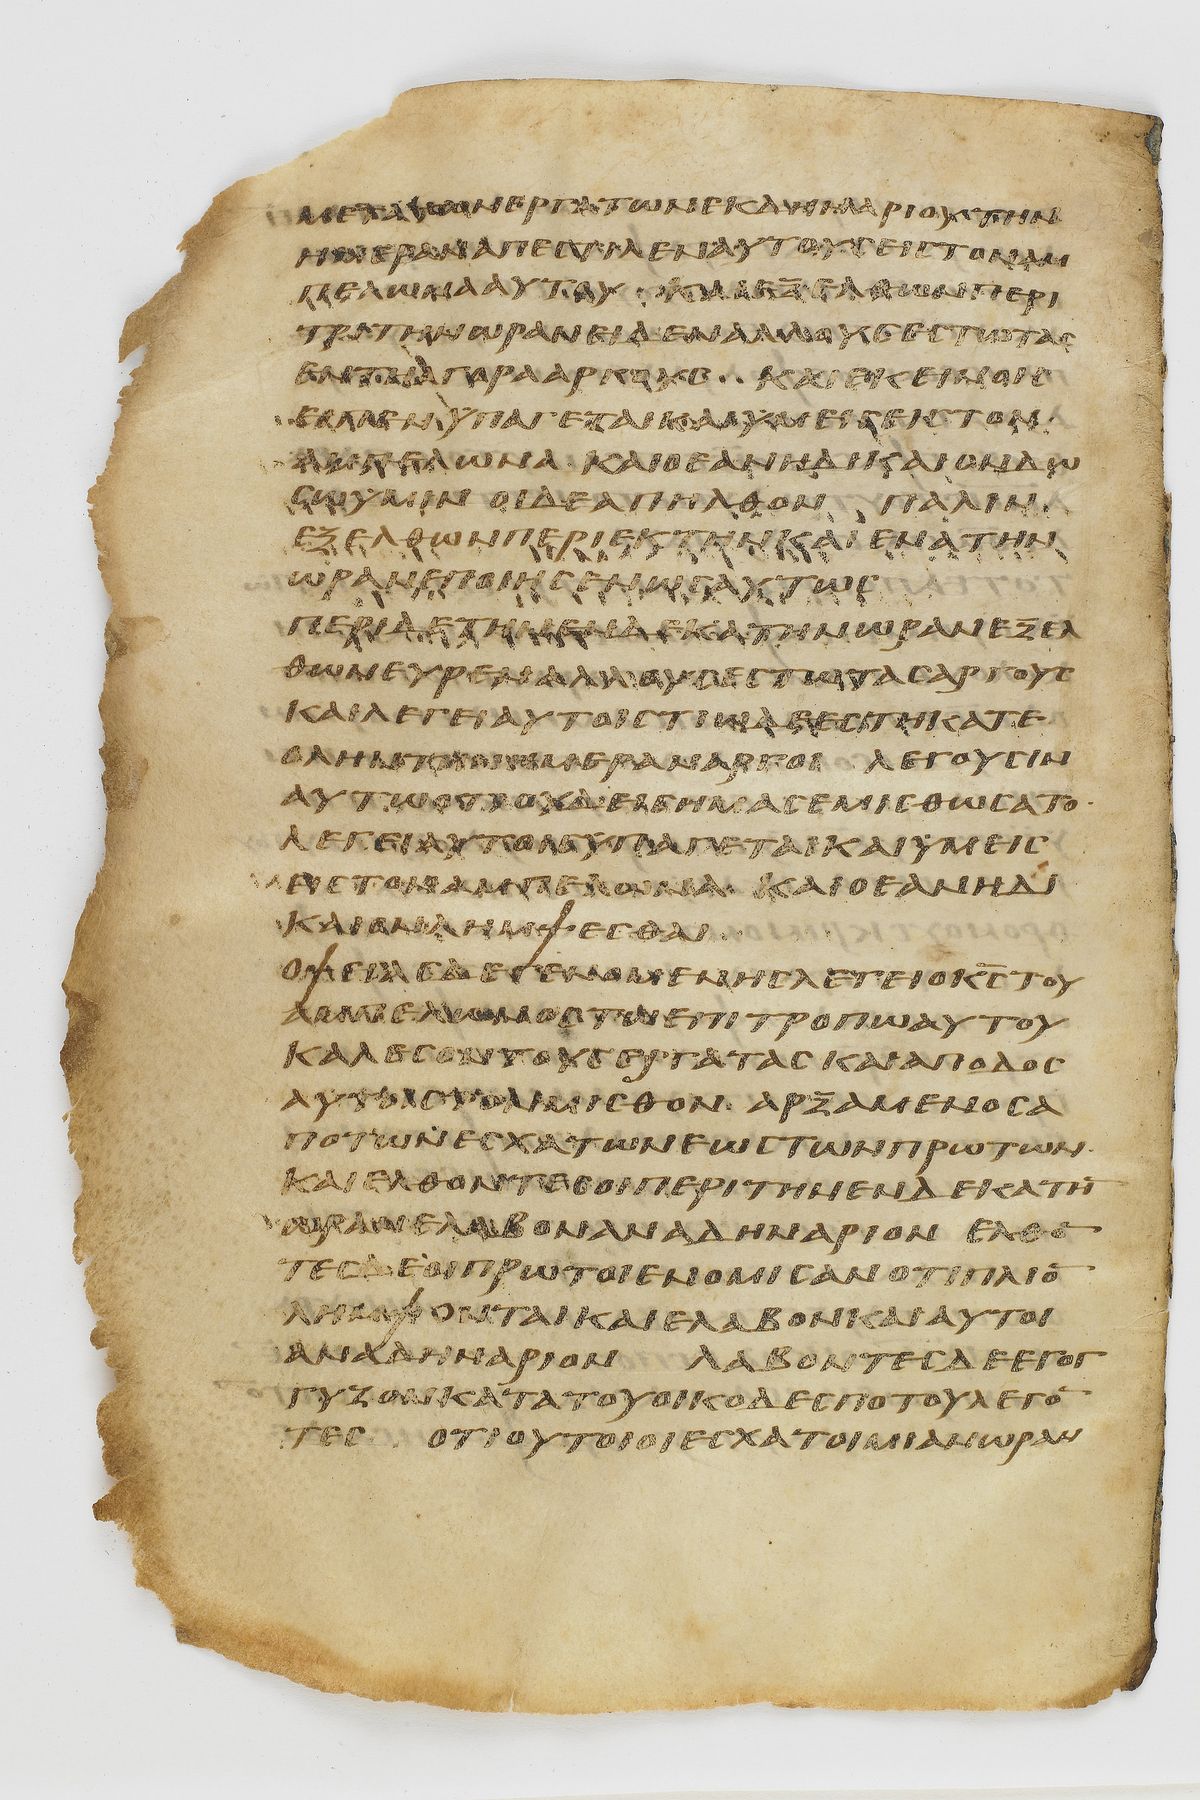 ΜΕΤΑΤΩΝΕΡΓΑΤΩΝΕΚΔΗΝΑΡΙΟΥΤΗΝ
ΗΜΕΡΑΝΑΠΕΣΤΕΙΛΕΝΑΥΤΟΥΣΕΙΣΤΟΝΑΜ
ΠΕΛΩΝΑΑΥΤΟΥ ΚΑΙΕΞΕΛΘΩΝΠΕΡΙ
ΤΡΙΤΗΝΩΡΑΝΕΙΔΕΝΑΛΛΟΥΣΕΣΤΩΤΑΣ
ΕΝΤΗΑΓΟΡΑΑΡΓΟΥΣ ΚΑΚΕΙΝΟΙΣ
ΕΙΠΕΝΥΠΑΓΕΤΑΙΚΑΙΥΜΕΙΣΕΙΣΤΟΝ
ΑΜΠΕΛΩΝΑ ΚΑΙΟΕΑΝΗΔΙΚΑΙΟΝΔΩ
ΣΩΥΜΙΝ ΟΙΔΕΑΠΗΛΘΟΝ ΠΑΛΙΝ
ΕΞΕΛΘΩΝΠΕΡΙΕΚΤΗΝΚΑΙΕΝΑΤΗΝ
ΩΡΑΝΕΠΟΙΗΣΕΝΩΣΑΥΤΩΣ
ΠΕΡΙΔΕΤΗΝΕΝΔΕΚΑΤΗΝΩΡΑΝΕΞΕΛ
ΘΩΝΕΥΡΕΝΑΛΛΟΥΣΕΣΤΩΤΑΣΑΡΓΟΥΣ
ΚΑΙΛΕΓΕΙΑΥΤΟΙΣΤΙΩΔΕΕΣΤΗΚΑΤΕ
ΟΛΗΝΤΗΝΗΜΕΡΑΝΑΡΓΟΙ ΛΕΓΟΥΣΙΝ
ΑΥΤΩΟΤΙΟΥΔΕΙΣΗΜΑΣΕΜΙΣΘΩΣΑΤΟ
ΛΕΓΕΙΑΥΤΟΙΣΥΠΑΓΕΤΑΙΚΑΙΥΜΕΙΣ
ΕΙΣΤΟΝΑΜΠΕΛΩΝΑ ΚΑΙΟΕΑΝΗΔΙ
ΚΑΙΟΝΛΗΜΨΕΣΘΑΙ
ΟΨΕΙΑΣΔΕΓΕΝΟΜΕΝΗΣΛΕΓΕΙΟΚΣΤΟΥ
ΑΜΠΕΛΩΝΟΣΤΩΕΠΙΤΡΟΠΩΑΥΤΟΥ
ΚΑΛΕΣΟΝΤΟΥΣΕΡΓΑΤΑΣΚΑΙΑΠΟΔΟΣ
ΑΥΤΟΙΣΤΟΝΜΙΣΘΟΝ ΑΡΞΑΜΕΝΟΣΑ
ΠΟΤΩΝΕΣΧΑΤΩΝΕΩΣΤΩΝΠΡΩΤΩΝ
ΚΑΙΕΛΘΟΝΤΕΣΟΙΠΕΡΙΤΗΝΕΝΔΕΚΑΤΗ̅
ΩΡΑΝΕΛΑΒΟΝΑΝΑΔΗΝΑΡΙΟΝ ΕΛΘΟ̅
ΤΕΣΔΕΟΙΠΡΩΤΟΙΕΝΟΜΙΣΑΝΟΤΙΠΛΙΟ
ΝΑΛΗΜΨΟΝΤΑΙΚΑΙΕΛΑΒΟΝΚΑΙΑΥΤΟΙ
ΑΝΑΔΗΝΑΡΙΟΝ ΛΑΒΟΝΤΕΣΔΕΕΓΟΓ
ΓΥΖΟΝΚΑΤΑΤΟΥΟΙΚΟΔΕΣΠΟΤΟΥΛΕΓΟ̅
ΤΕΣ ΟΤΙΟΥΤΟΙΟΙΕΣΧΑΤΟΙΜΙΑΝΩΡΑΝ